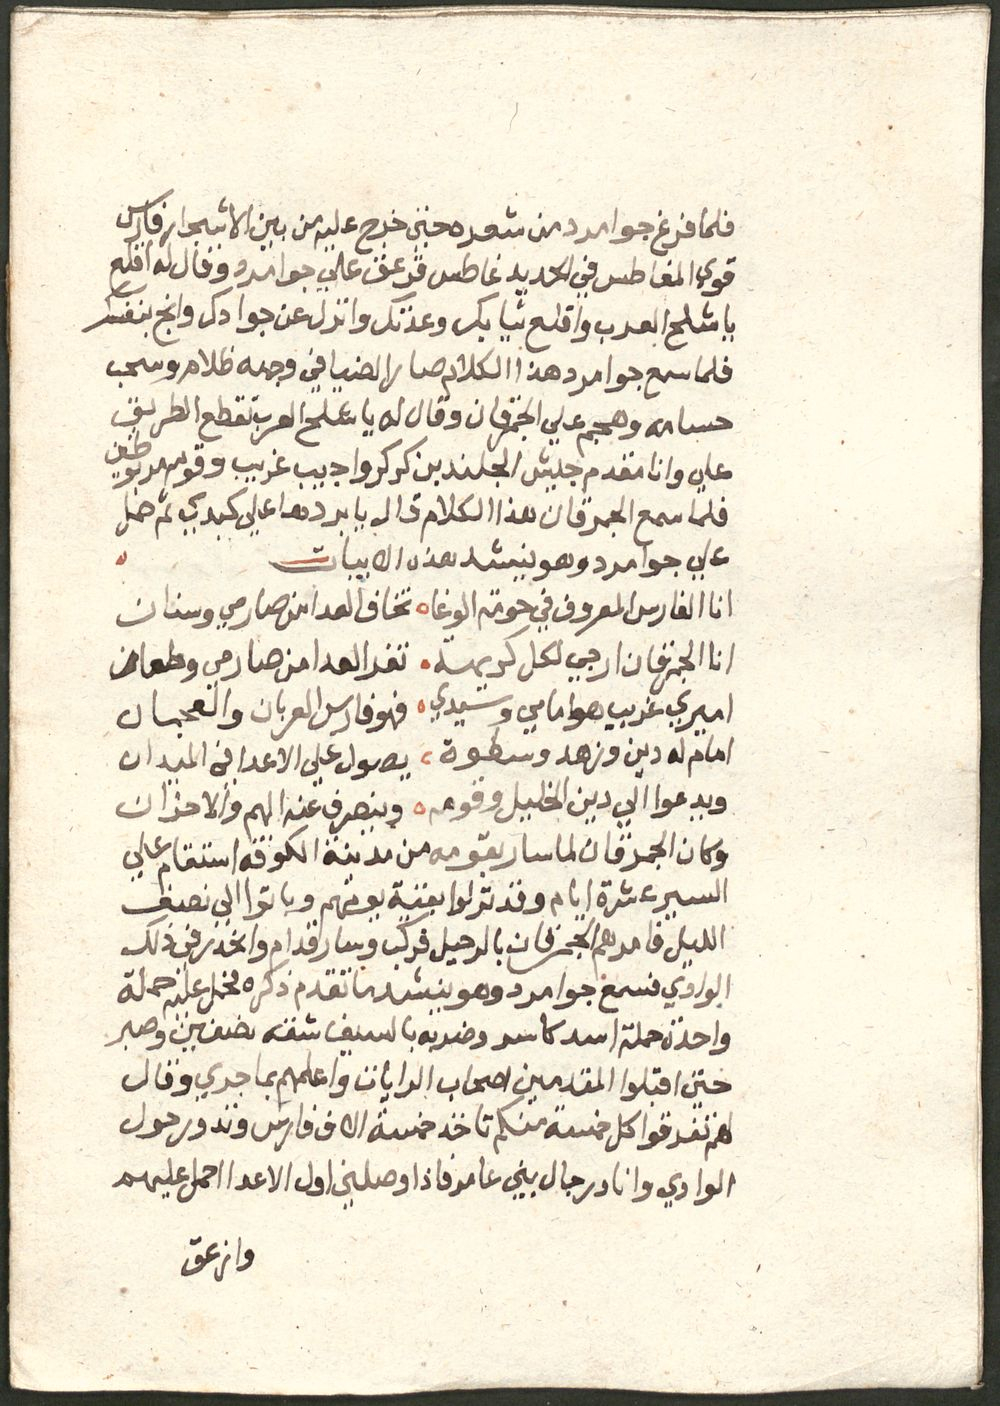 فلما فرغ جوامرد من شعره حتي خرج عليه من بين الاشجار فارس
قوي المغاطس في الحديد غاطس فزعق علي جوامرد وقال له اقلع
يا شلح العرب واقلع ثيابك وعدتك وانزل عن جوادك وانج بنفسك
فلما سمع جوامرد هذا الكلام صار الضيا في وجهه ظلام وسحب
حسامه وهجم علي الجمرقان وقال له يا شلح العرب تقطع الطريق
علي وانا مقدم جيش الجلند بن كركر واجيب غريب وقومه مربوطين
فلما سمع الجمرقان هذا الكلام قال يا بردها علي كبدي ثم حمل
علي جوامرد وهو ينشد هذه الابيات
انا الفارس المعروف في حومة الوغا ه تخاف العدا من صارمي وسنان
انا الجمرقان ارجي لكل كريهة ه تفر العدا من صارمي وطعان
اميري غريب هو امامي وسيدي ه فهو فارس العربان والعجمان
امام له دين وزهد وسطوة ه يصول علي الاعدا في الميدان
ويدعوا الي دين الخليل وقومه ه وينصرف عنه الهم والاحزان
وكان الجمرقان لما سار بقومه من مدينة الكوفة استقام علي
السير عشرة ايام وقد نزلوا بقية يومهم وباتوا الي نصف
الليل فامرهم الجمرقان بالرحيل فركب وسار قدام وانحدر في ذلك
الوادي فسمع جوامرد وهو ينشد ما تقدم ذكره فحمل عليه حملة
واحدة حملة اسد كاسر وضربه بالسيف شقه نصفين وصبر
حتي اقبلوا المقدمين اصحاب الرايات واعلمهم بما جري وقال
لهم تفرقوا كل خمسة منكم تاخذ خمسة الاف فارس وتدور حول
الوادي وانا ورجال بني عامر فاذا وصلني اول الاعدا احمل عليهم
وازعق